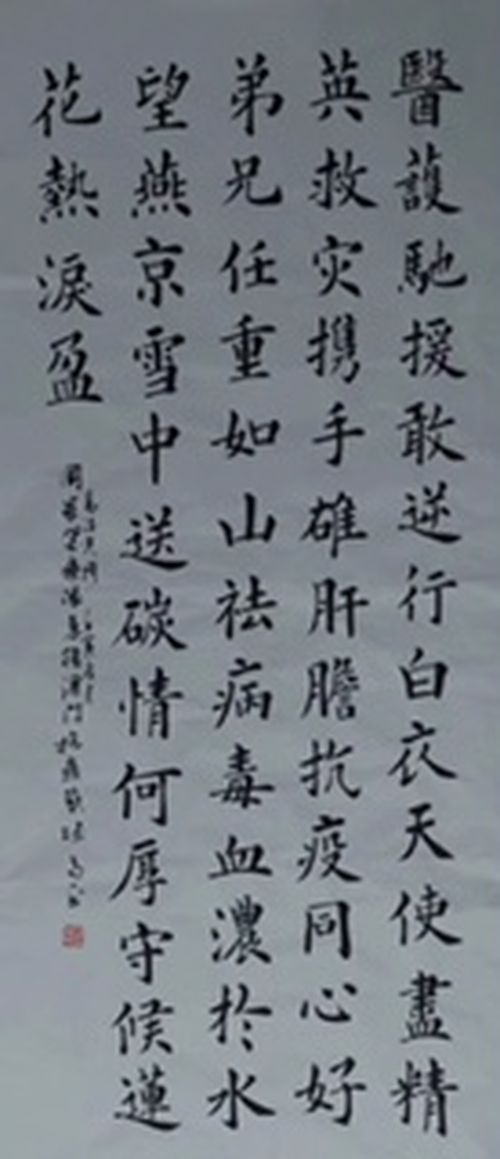 醫護馳援敢逆行白衣天使盡精
英救灾携手雄肝膽抗疫同心好
弟兄任重如山祛病毒血濃於水
望燕京雪中送碳情何厚守候蓮
花熱淚盈